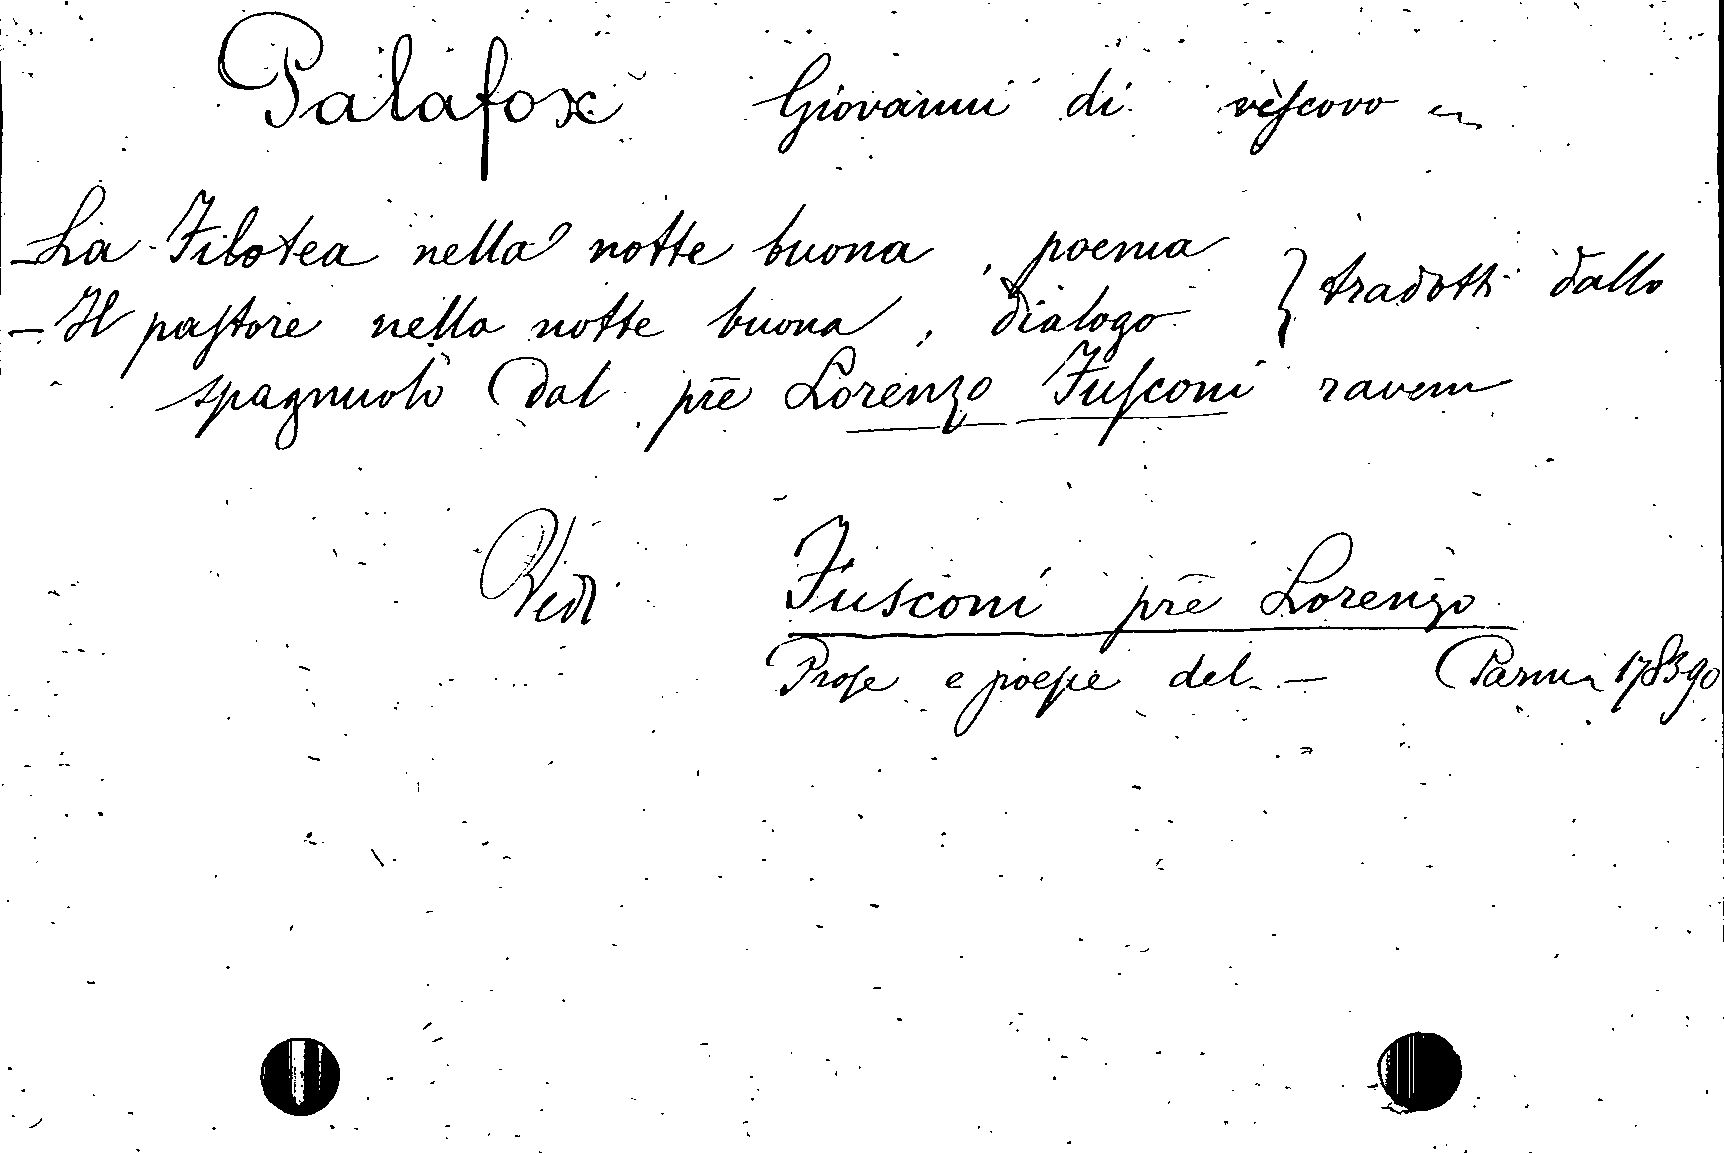 Palafox Giovanni di vescovo
- La Filotea nella notte buona, poema } tradotti dallo
- Il pastore nella notte buona, dialogo
spagnuolo dal pre Lorenzo Fusconi ravenn
Vedi Fusconi pre Lorenzo
Prose e poesie del - Parma 1783-90